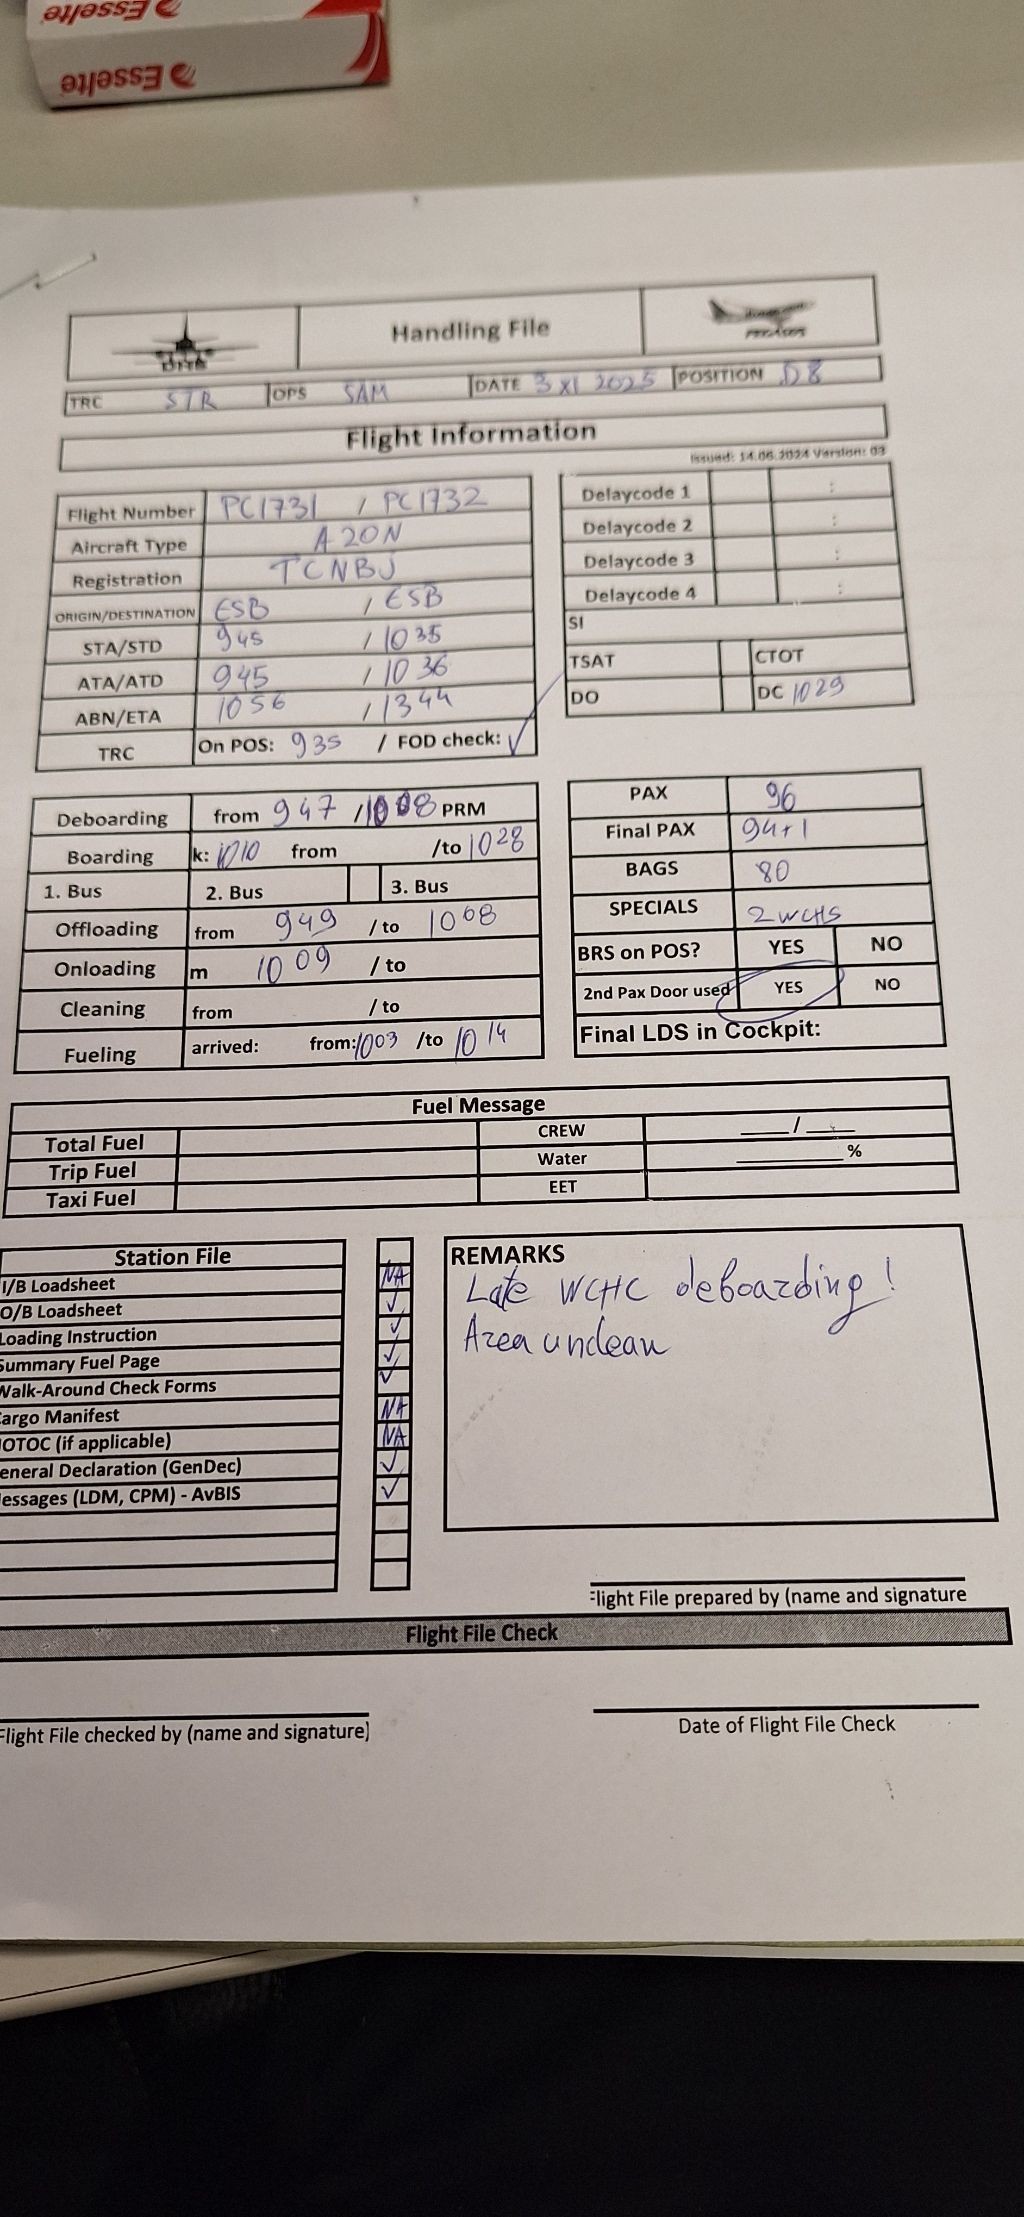 Esselte
Esselte
Handling File
PEGASUS
TRC STR OPS SAM DATE 3 XI 2025 POSITION D8
Flight Information
Issued: 14.06.2024 Version: 03
Flight Number PC1731 / PC1732
Aircraft Type A20N
Registration TCNBJ
ORIGIN/DESTINATION ESB / ESB
STA/STD 945 / 1035
ATA/ATD 945 / 1036
ABN/ETA 1056 / 1344
TRC On POS: 935 / FOD check: ✓
Delaycode 1 :
Delaycode 2 :
Delaycode 3 :
Delaycode 4 :
SI
TSAT CTOT
DO DC 1029
Deboarding from 947 / 1008 PRM
Boarding k: 1010 from /to 1028
1. Bus 2. Bus 3. Bus
Offloading from 949 / to 1008
Onloading m 1009 / to
Cleaning from / to
Fueling arrived: from: 1003 /to 1014
PAX 96
Final PAX 94+1
BAGS 80
SPECIALS 2 WCHS
BRS on POS? YES NO
2nd Pax Door used YES NO
Final LDS in Cockpit:
Fuel Message
Total Fuel CREW ___/___
Trip Fuel Water ______%
Taxi Fuel EET
Station File
I/B Loadsheet NA
O/B Loadsheet ✓
Loading Instruction ✓
Summary Fuel Page ✓
Walk-Around Check Forms ✓
Cargo Manifest NA
OTOC (if applicable) NA
eneral Declaration (GenDec) ✓
essages (LDM, CPM) - AvBIS ✓
REMARKS
Late WCHC deboarding!
Area unclean
Flight File prepared by (name and signature
Flight File Check
Flight File checked by (name and signature)
Date of Flight File Check